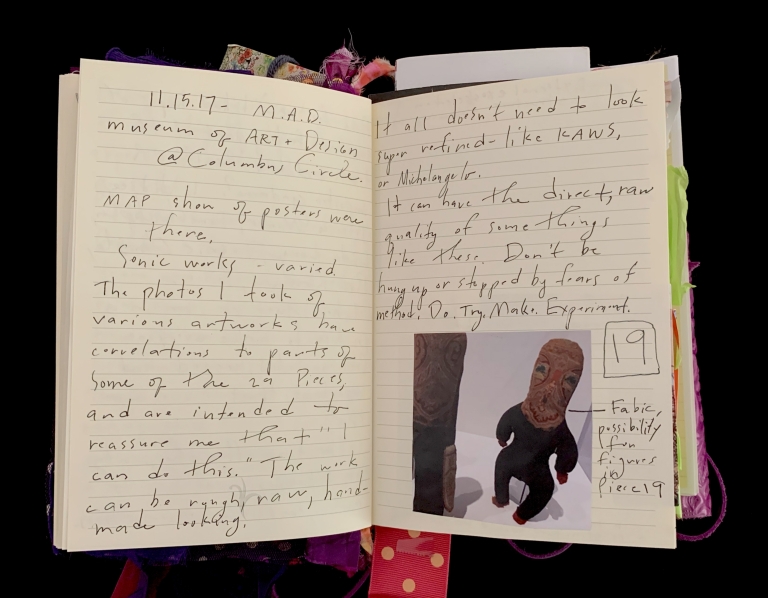 11.15.17- M.A.D.
museum of ART + Design
@ Columbus Circle.
MAP show of posters were
there.
Sonic works - varied
The photos I took of
various artworks have
correlations to parts of
some of the 29 Pieces,
and are intended to
reassure me that "I
can do this." The work
can be rough, raw, hand-
made looking.
It all doesn't need to look
super refined- like KAWS,
or Michelangelo.
It can have the direct, raw
quality of some things
like these. Don't be
hung up or stopped by fears of
method. Do. Try. Make. Experiment.
19
Fabic,
possibility
for
figures
in
Piece 19